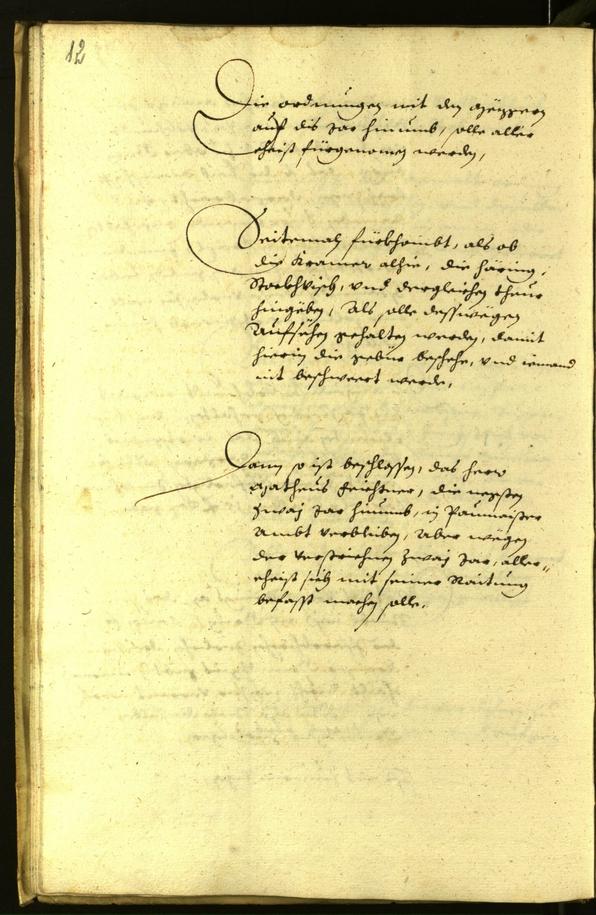 12
Die ordnungen mit den Meẗzgern
auf dis Jar hinumb, solle aller
eheist fürgenomen werden,
Seitemaln fürkhombt, als ob
die Kramer alhie, die häring,
Stockhvisch, und dergleichen theur
hingeben, Als solle desswegen
Aufsehen gehalten werden, damit
hierin die gebür beschehe, und iemand
nit beschwert werde,
Dann so ist beschlossen, das herr
Matheus Feichtner, die negsten
zway Jar hinumb, in Paumaister
Ambt verbleiben, Aber wegen
der verstrichnen zway Jar, aller„
eheist sich mit seiner Raitung
befasst machen solle,